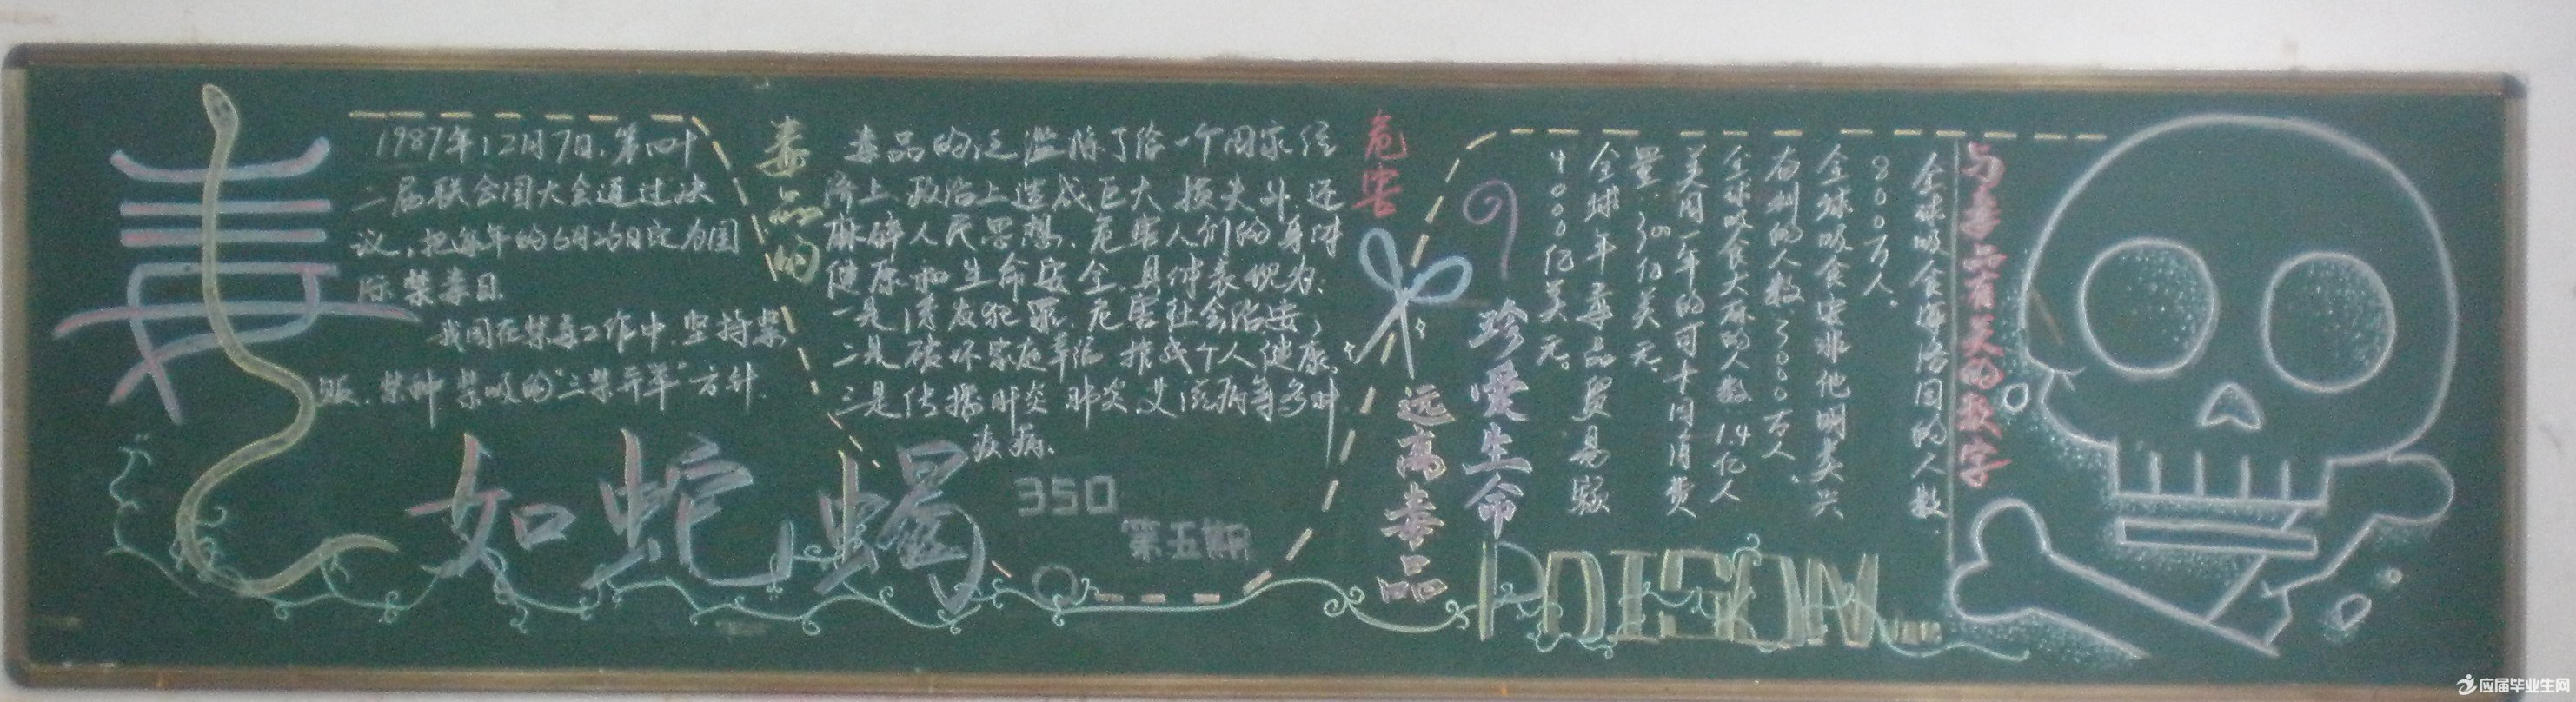 毒
如蛇蝎
1987年12月7日，第四十
二届联合国大会通过决
议，把每年的6月26日定为国
际禁毒日.
我国在禁毒工作中，坚持禁
贩、禁种、禁吸的“三禁并举”方针.
毒品的
危害
毒品的泛滥除了给一个国家经
济上、政治上造成巨大损失外，还
麻醉人民思想、危害人们的身体
健康和生命安全.具体表现为：
一是诱发犯罪、危害社会治安；
二是破坏家庭幸福、摧残个人健康.
三是传播肝炎、肺炎、艾滋病等多种
疾病.
350
第五期
珍爱生命
远离毒品
与毒品有关的数字
全球吸食海洛因的人数
800万人.
全球吸食安非他明类兴
奋剂的人数，3000万人.
全球吸食大麻的人数1.4亿人
美国一年的可卡因消费
量，300亿美元.
全球年毒品贸易额
4000亿美元.
POISON
应届毕业生网